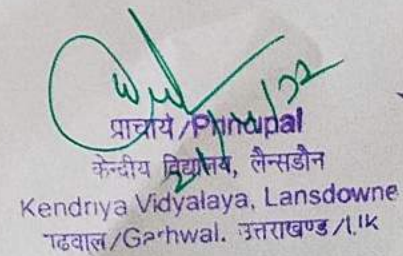 प्राचार्य/Principal
केन्द्रीय विद्यालय, लैन्सडौन
Kendriya Vidyalaya, Lansdowne
गढवाल/Garhwal. उत्तराखण्ड/U.K